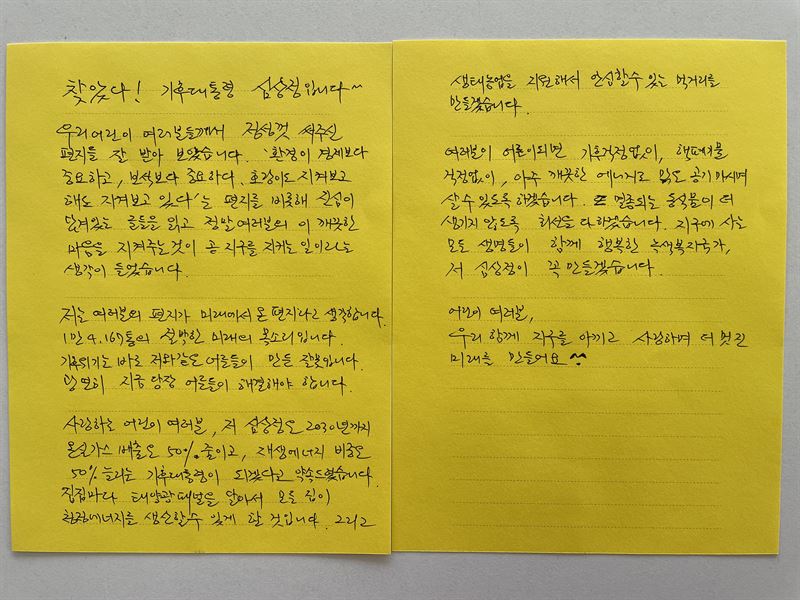 찾았다! 기후대통령 심상정입니다~
우리 어린이 여러분들께서 정성껏 써주신
편지를 잘 받아 보았습니다. '환경이 경제보다
중요하고, 보석보다 중요하다. 호랑이도 지켜보고
해도 지켜보고 있다'는 편지를 비롯해 진심이
담겨있는 글들을 읽고 정말 여러분의 이 깨끗한
마음을 지켜주는 것이 곧 지구를 지키는 일이라는
생각이 들었습니다.
저는 여러분의 편지가 미래에서 온 편지라고 생각합니다.
1만 4,167통의 절박한 미래의 목소리입니다.
기후위기는 바로 저와 같은 어른들이 만든 잘못입니다.
당연히 지금 당장 어른들이 해결해야 합니다.
사랑하는 어린이 여러분, 저 심상정은 2030년까지
온실가스 배출은 50% 줄이고, 재생에너지 비중은
50% 늘리는 기후대통령이 되겠다고 약속드렸습니다.
집집마다 태양광 패널을 달아서 모든 집이
청정에너지를 생산할 수 있게 할 것입니다. 그리고
생태농업을 지원해서 안심할 수 있는 먹거리를
만들겠습니다.
여러분이 어른이 되면 기후걱정 없이, 핵폐기물
걱정없이, 아주 깨끗한 에너지로 맑은 공기 마시며
살 수 있도록 하겠습니다. 멸종되는 동식물이 더
생기지 않도록 최선을 다하겠습니다. 지구에 사는
모든 생명들이 함께 행복한 녹색복지국가,
저 심상정이 꼭 만들겠습니다.
어린이 여러분,
우리 함께 지구를 아끼고 사랑하며 더 멋진
미래를 만들어요 ^^